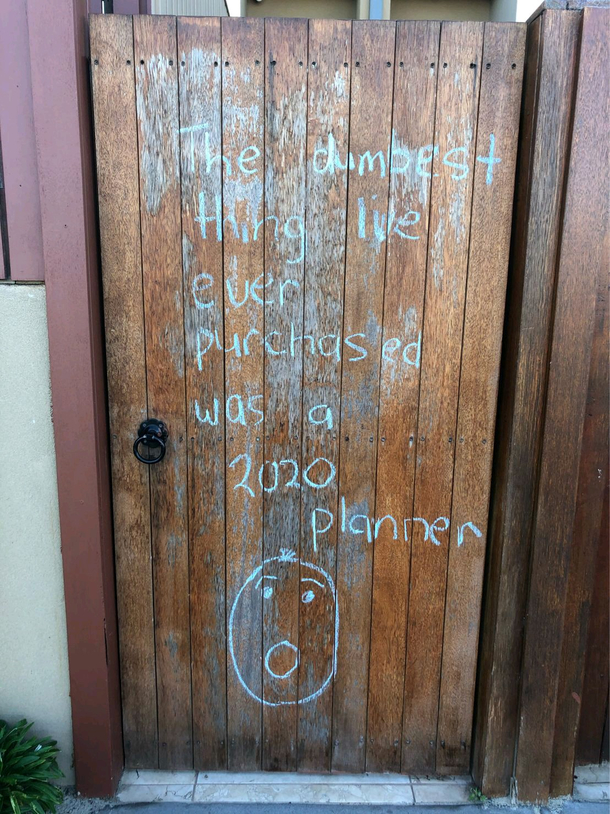 The dumbest
thing iive
ever
purchased
was a
2020
planner